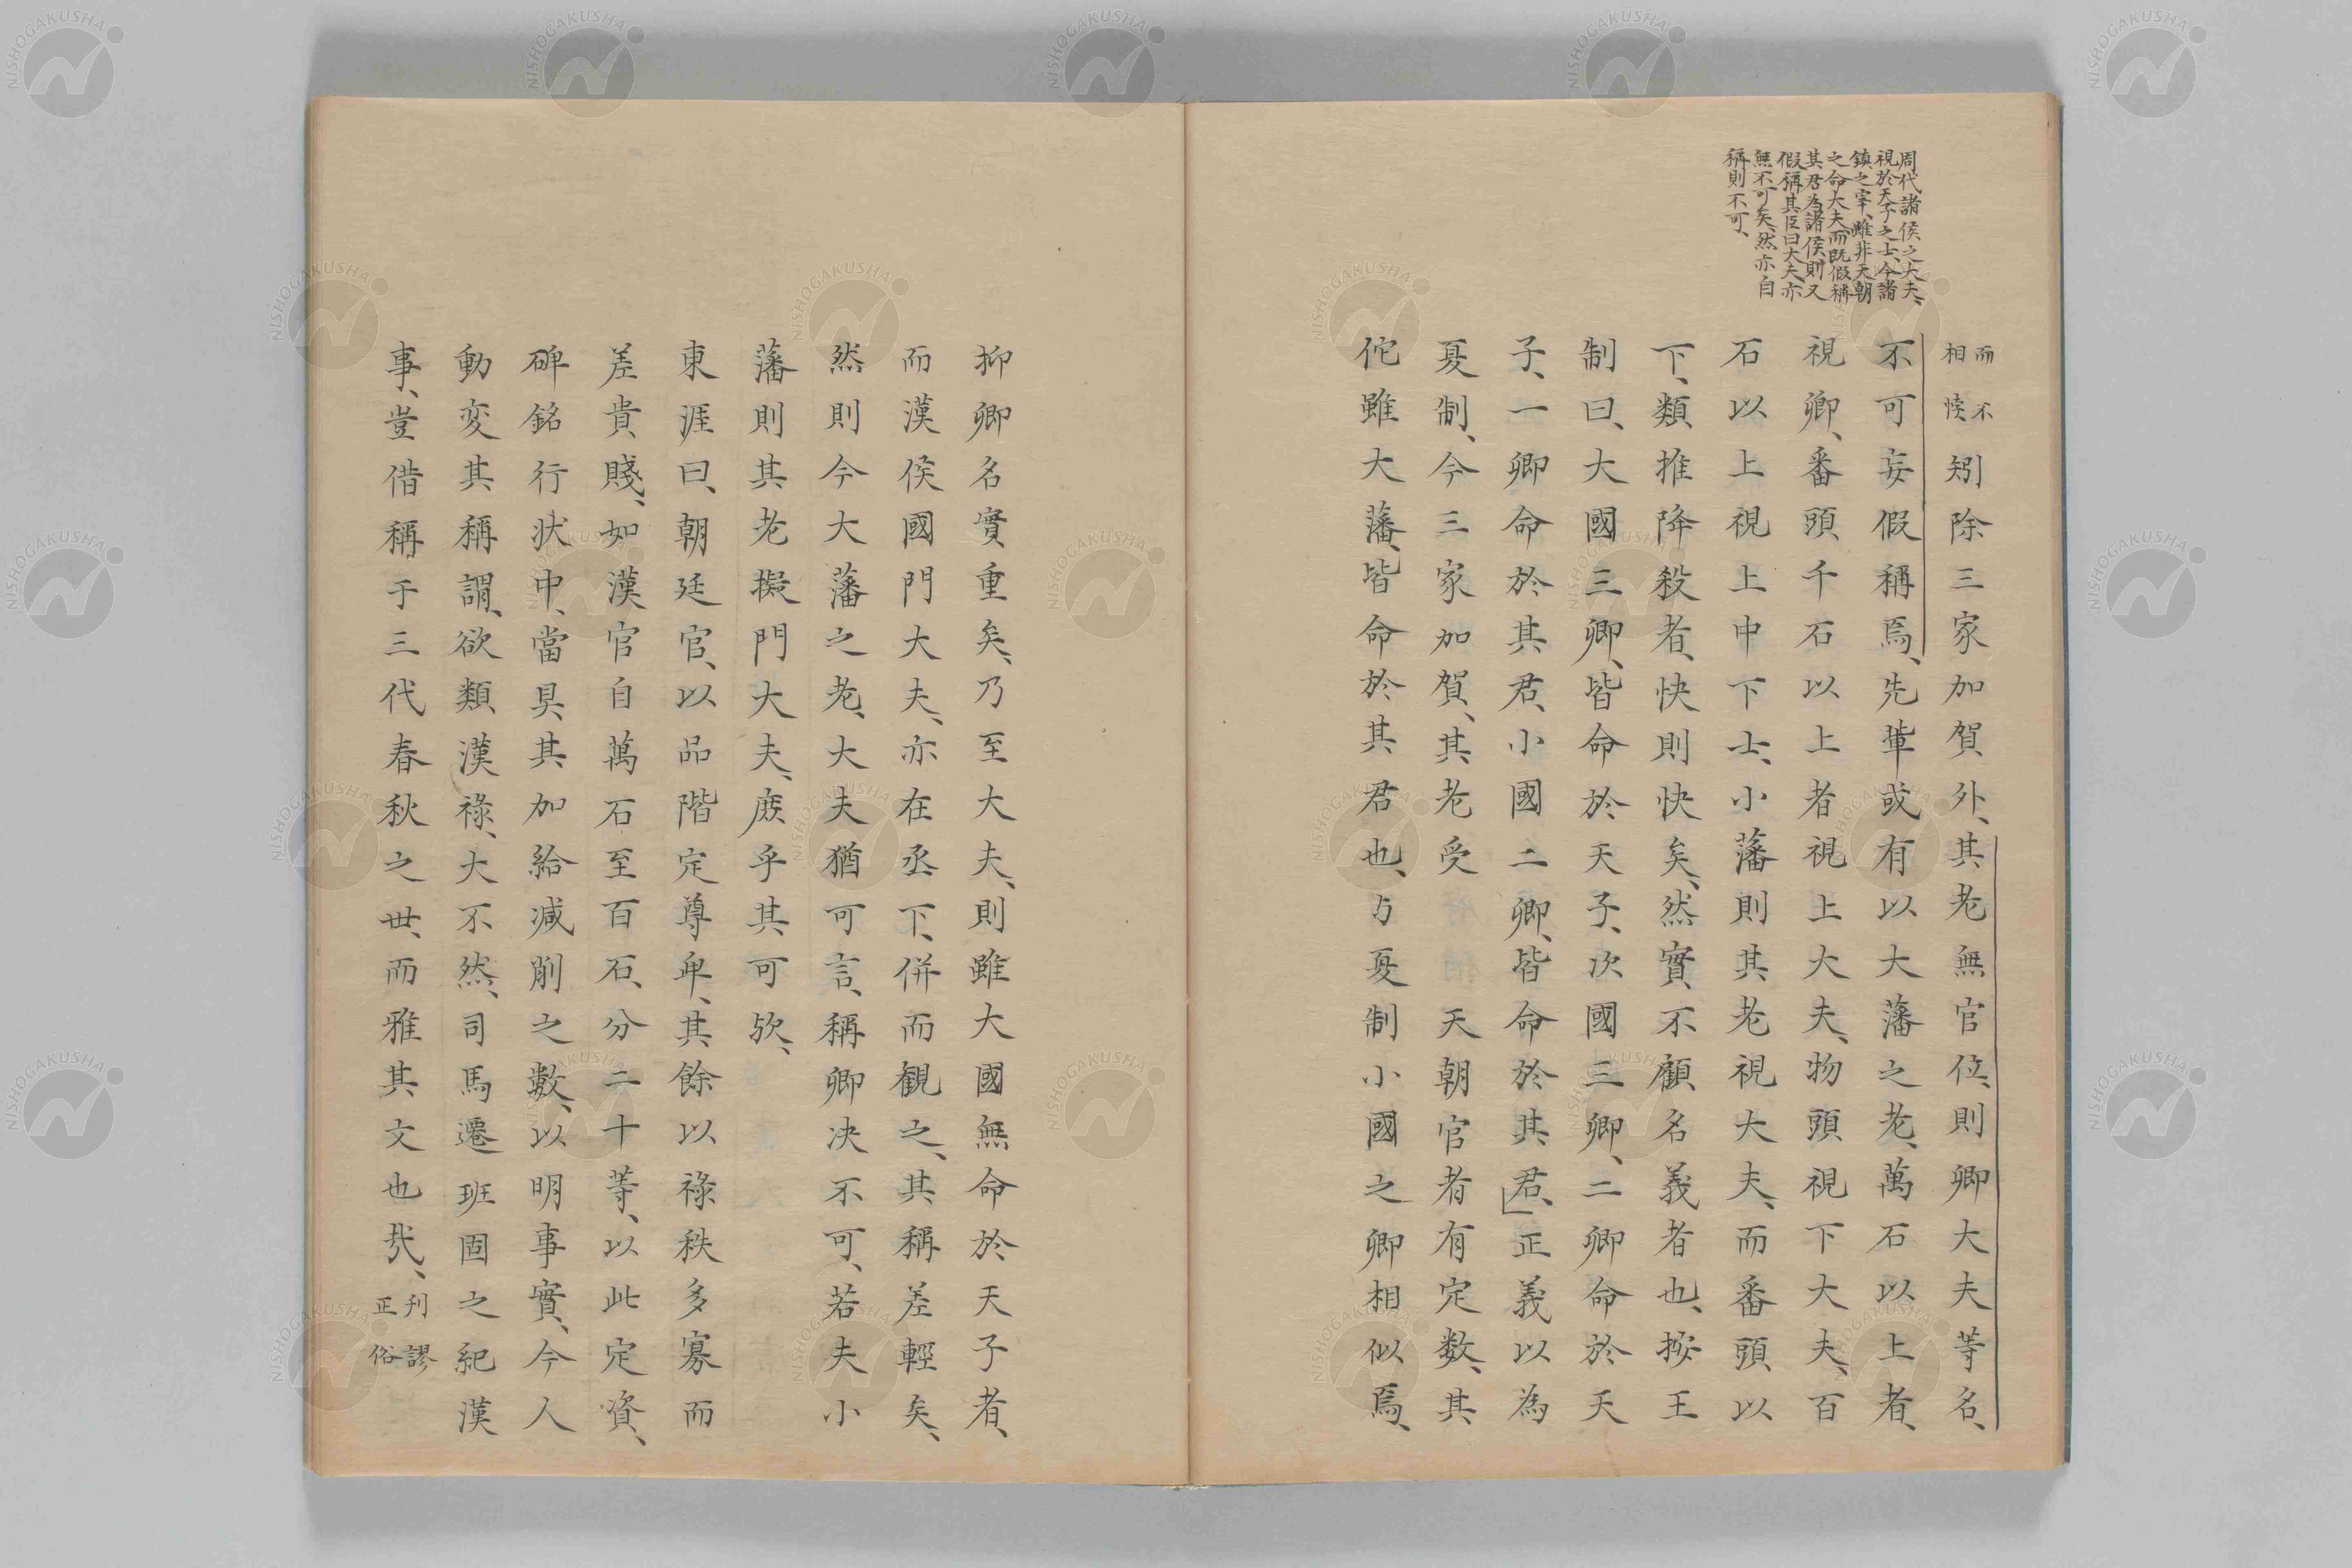 周代諸侯之大夫、
視於天子之士、今諸
鎮之宰、雖非天朝
之命大夫、而既假稱
其君為諸侯、則又
假稱其臣曰大夫、亦
無不可矣、然亦自
稱則不可、
而不
相悖矧除三家加賀外、其老無官位、則卿大夫等名、
不可妄假稱焉、先輩或有以大藩之老、萬石以上者、
視卿、番頭千石以上者視上大夫、物頭視下大夫、百
石以上視上中下士、小藩則其老視大夫、而番頭以
下、類推降殺者、快則快矣、然實不顧名義者也、按王
制曰、大國三卿、皆命於天子、次國三卿、二卿命於天
子、一卿命於其君、小國二卿、皆命於其君、」正義以為
夏制、今三家加賀、其老受 天朝官者有定数、其
佗雖大藩、皆命於其君也、与夏制小國之卿相似焉、
抑卿名實重矣、乃至大夫、則雖大國無命於天子者、
而漢侯國門大夫、亦在丞下、併而観之、其稱差輕矣、
然則今大藩之老、大夫猶可言、稱卿决不可、若夫小
藩則其老擬門大夫、庶乎其可欤、
東涯曰、朝廷官、以品階定尊卑、其餘以祿秩多寡而
差貴賤、如漢官自萬石至百石、分二十等、以此定資、
碑銘行状中、當具其加給减削之數、以明事實、今人
動変其稱謂、欲類漢祿、大不然、司馬遷班固之紀漢
事、豈借稱于三代春秋之世、而雅其文也哉、刊謬
正俗
NISHOGAKUSHA